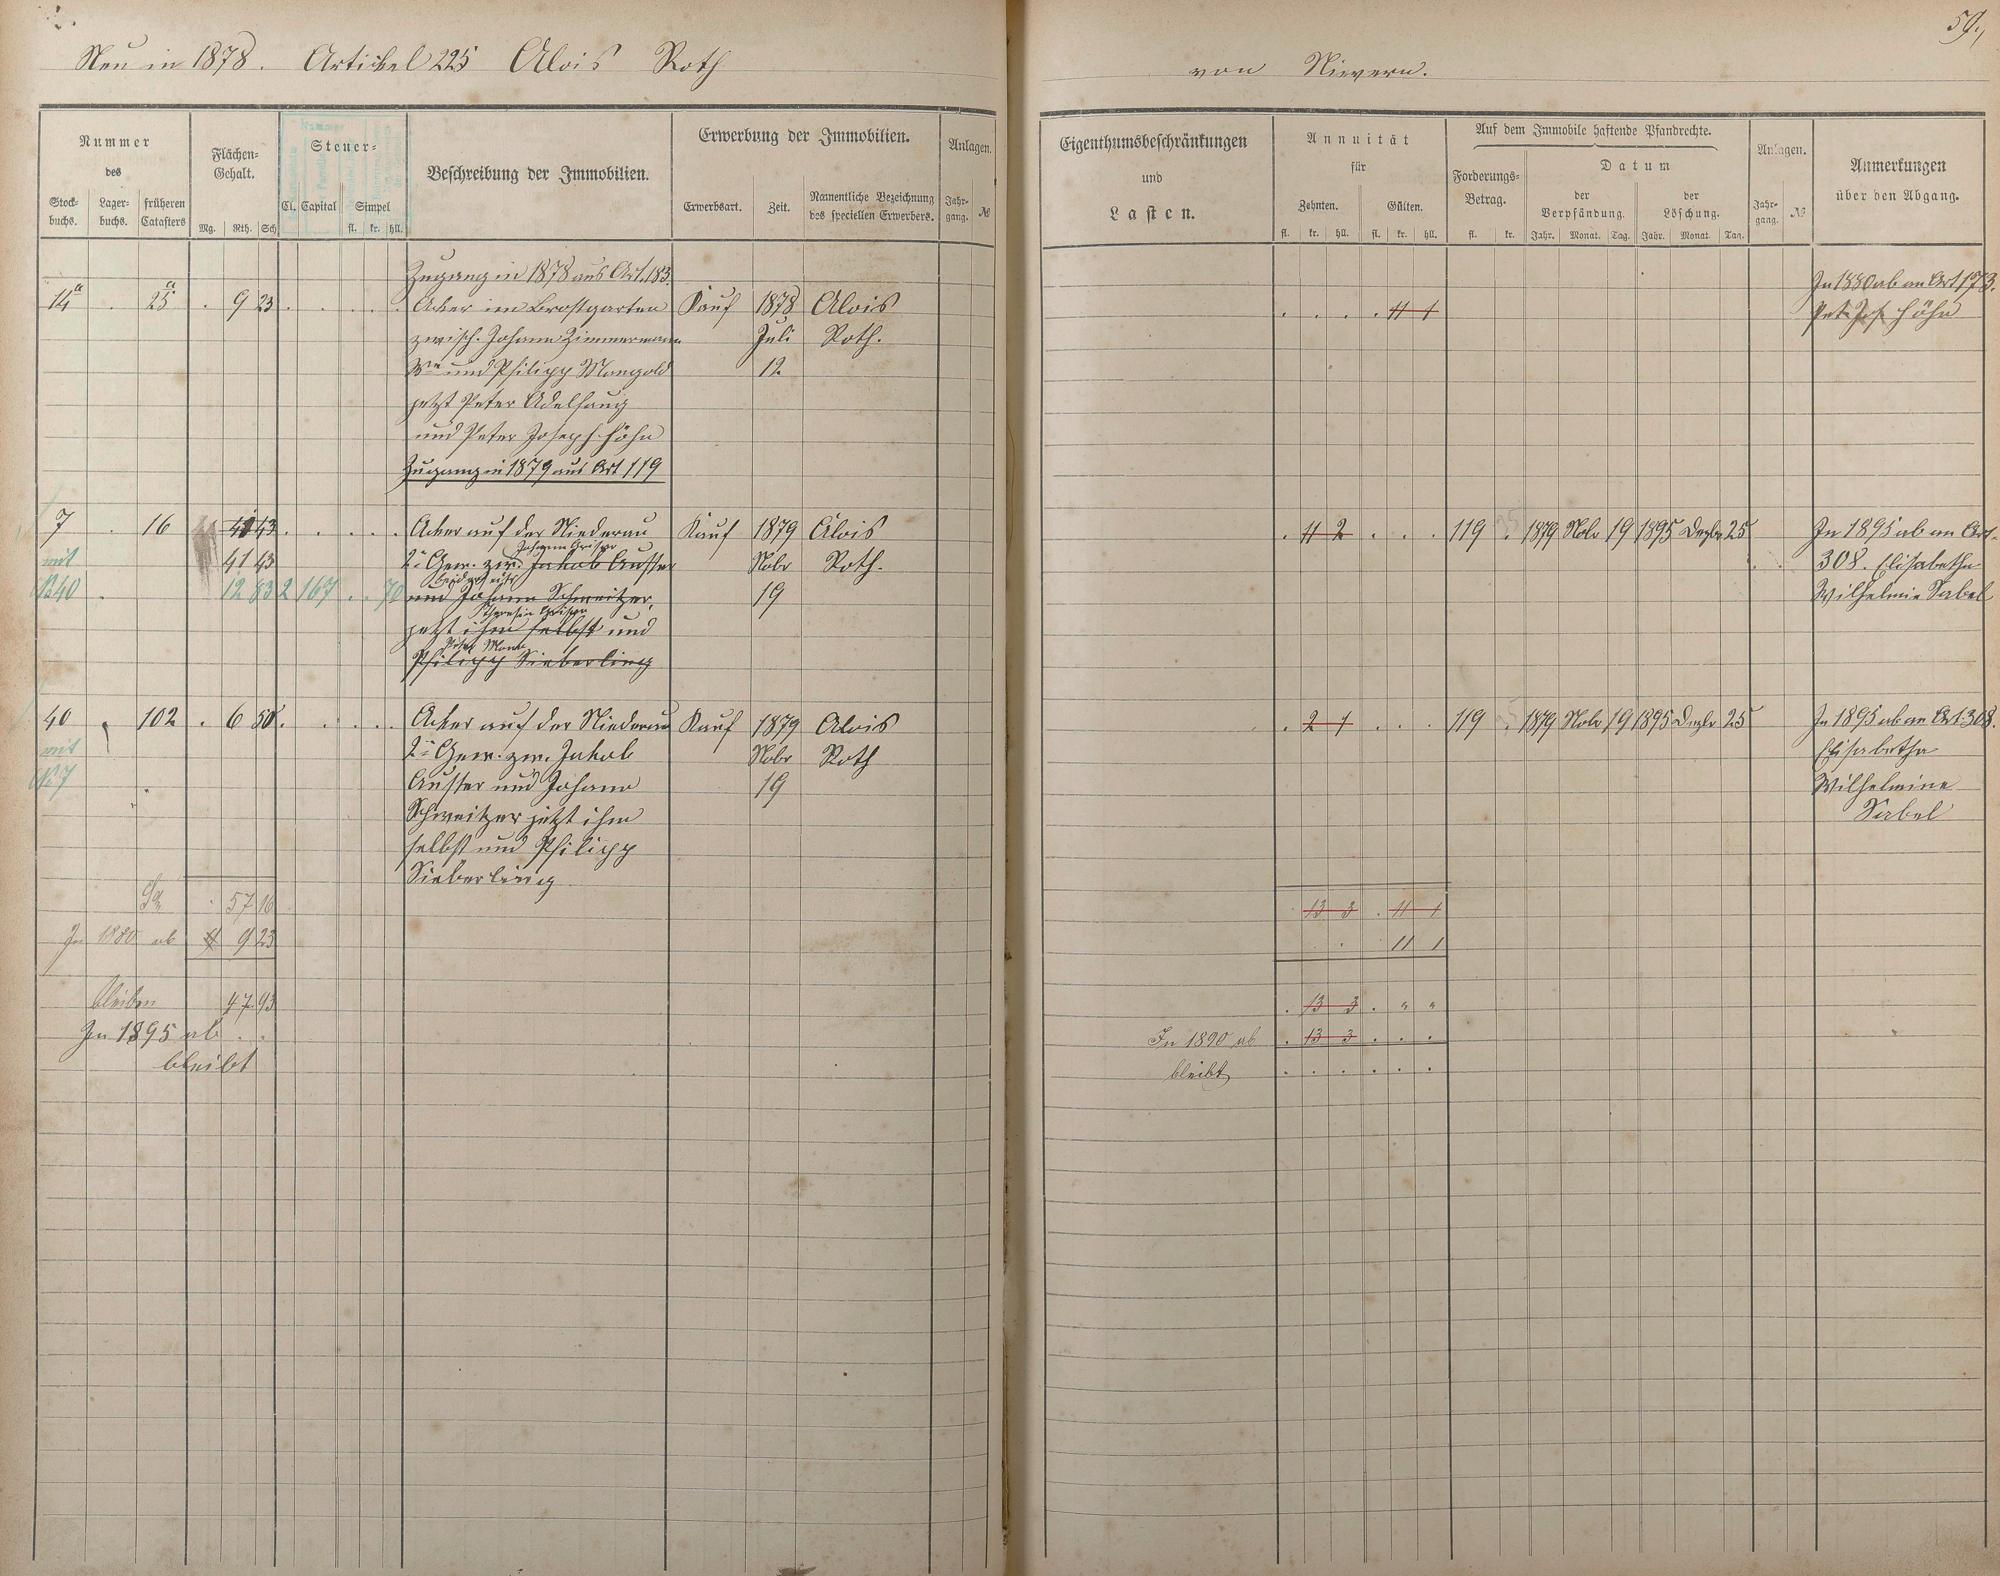 59.
Neu in 1878. Artickel 225 Alois Roth
von Nievern.
Nummer
des
Stock-
buchs.
Lager-
buchs.
früheren
Catasters
Flächen-
Gehalt.
Mg. Rth. Sch.
Steuer-
Cl. Capital Simpel
fl. kr. hll.
Beschreibung der Immobilien.
Erwerbung der Immobilien.
Erwerbsart. Zeit.
Namentliche Bezeichnung
des speciellen Erwerbers.
Anlagen.
Jahr-
gang.
№
Eigenthumsbeschränkungen
und
Lasten.
Annuität
für
Zehnten. Gülten.
fl. kr. hll. fl. kr. hll.
Auf dem Immobile haftende Pfandrechte.
Forderungs-
Betrag.
fl. kr.
Datum
der
Verpfändung.
der
Löschung.
Jahr. Monat. Tag. Jahr. Monat. Tag.
Anlagen.
Jahr-
gang.
№
Anmerkungen
über den Abgang.
Zugang in 1878 aus Art. 183.
14a 25a 9 23 Acker im Brostgarten Kauf 1878 Alois
zwisch. Johann Zimmermann Juli Roth.
We und Philipp Mangold 12.
jetzt Peter Adelfang
und Peter Joseph Höhn
11 1
In 1880 ab an Art 173.
Pet. Jos. Höhn
Zugang in 1879 aus Art 119
7 16 43 Acker auf der Niederau Kauf 1879 Alois
mit 41 43 2e Gew. zw. Jakob Auster Nobr Roth.
№ 40 12 83 2 167 70 und Johann Schweitzer, 19
jetzt ihm selbst und
Philipp Sieberling
11 2 119 1879 Nobr 19 1895 Dezbr 25
In 1895 ab an Art.
308. Elisabetha
Wilhelmie Sabel
40 102 6 50 Acker auf der Niederau Kauf 1879 Alois
mit 2e Gew. zw. Jakob Nobr Roth
№ 7 Auster und Johann 19
Schweitzer jetzt ihm
selbst und Philipp
Sieberling
2 1 119 1879 Nobr 19 1895 Dezbr 25
In 1895 ab an Art. 308.
Elisabetha
Wilhelmine
Sabel
Sa 57 16
In 1880 ab 9 23
bleiben 47 93
In 1895 ab
bleibt
13 3 11 1
11 1
13 3 " "
In 1890 ab 13 3
bleibt